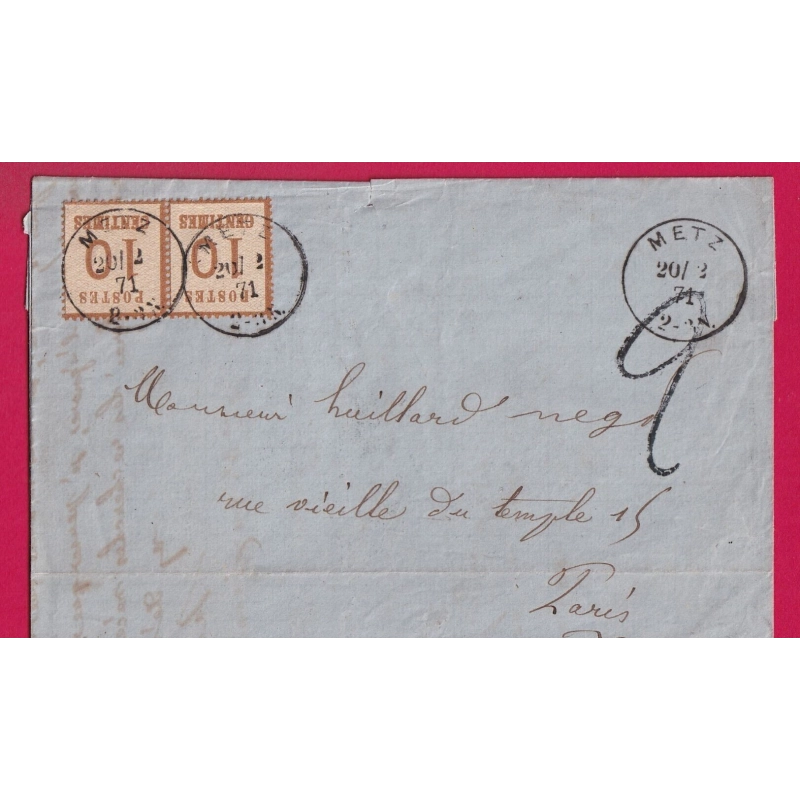 CENTIMES
10
POSTES
CENTIMES
10
POSTES
METZ
20/2
71
2-3N.
METZ
20/2
71
2-3N.
METZ
20/2
71
2-3N.
2
Monsieur huillard nego
rue vieille du temple 15
Paris